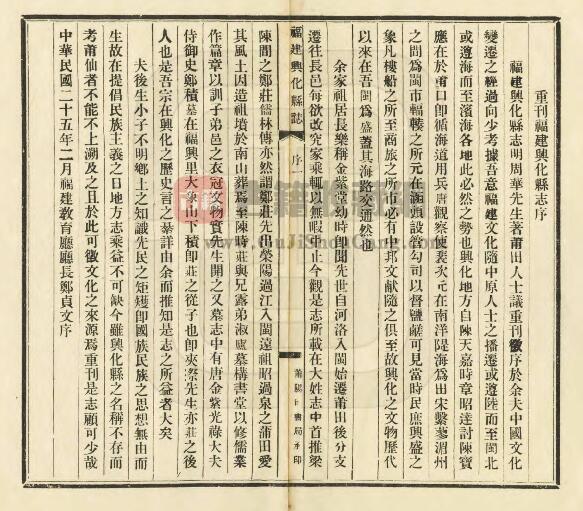 重刊福建興化縣志序
福建興化縣志明周華先生著莆田人士議重刊徵序於余夫中國文化
變遷之軫過向少考據吾意福建文化隨中原人士之播遷或遵陸而至閩北
或遵海而至濱海各地此必然之勢也興化地方自陳天嘉時章昭達討陳寶
應在於莆口即循海道用兵唐觀察使裴次元在南洋隄海為田宋繫蓼湄州
之間為閩市輻輳之所元在涵頭設管勾司以督鹽鹺可見當時民庶興盛之
象凡樓船之所至商旅之所必有他邦文獻隨之俱至故興化之文物歷代
以來在吾閩為盛蓋其海路交通然也
余家祖居長樂稱金紫堂幼時即聞先世自河洛入閩始遷莆田後分支
遷往長邑每欲改究家乘輒以無暇中止今觀是志所載在大姓志中首推梁
福建興化縣誌
序一
莆陽日書局承印
陳間之鄭莊儒林傳亦然謂鄭莊先出滎陽過江入閩遠祖昭過泉之莆田愛
其風土因造祖墳於南山葬焉至陳時莊與兄露弟淑廬墓構書堂以修儒業
作篇章以訓子弟邑之衣冠文物實先生開之又墓志中有唐金紫光祿大夫
侍御史鄭積墓在福興里大象山下積即莊之從子也即夾漈先生亦莊之後
人也是吾宗在興化之歷史言之綦詳由余而推知是志之所益者大矣
夫後生小子不明鄉土之知識先民之矩矱即國族民族之思想無由而
生故在提倡民族主義之日地方志乘益不可缺今雖興化縣之名稱不存而
考莆仙者不能不上溯及之且於此可徵文化之來源焉重刊是志顧可少哉
中華民國二十五年二月福建教育廳廳長鄭貞文序
www.GuJiShuGe.com